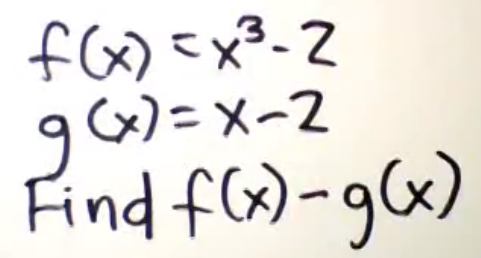 f(x) = x³-2
g(x) = x-2
Find f(x)-g(x)